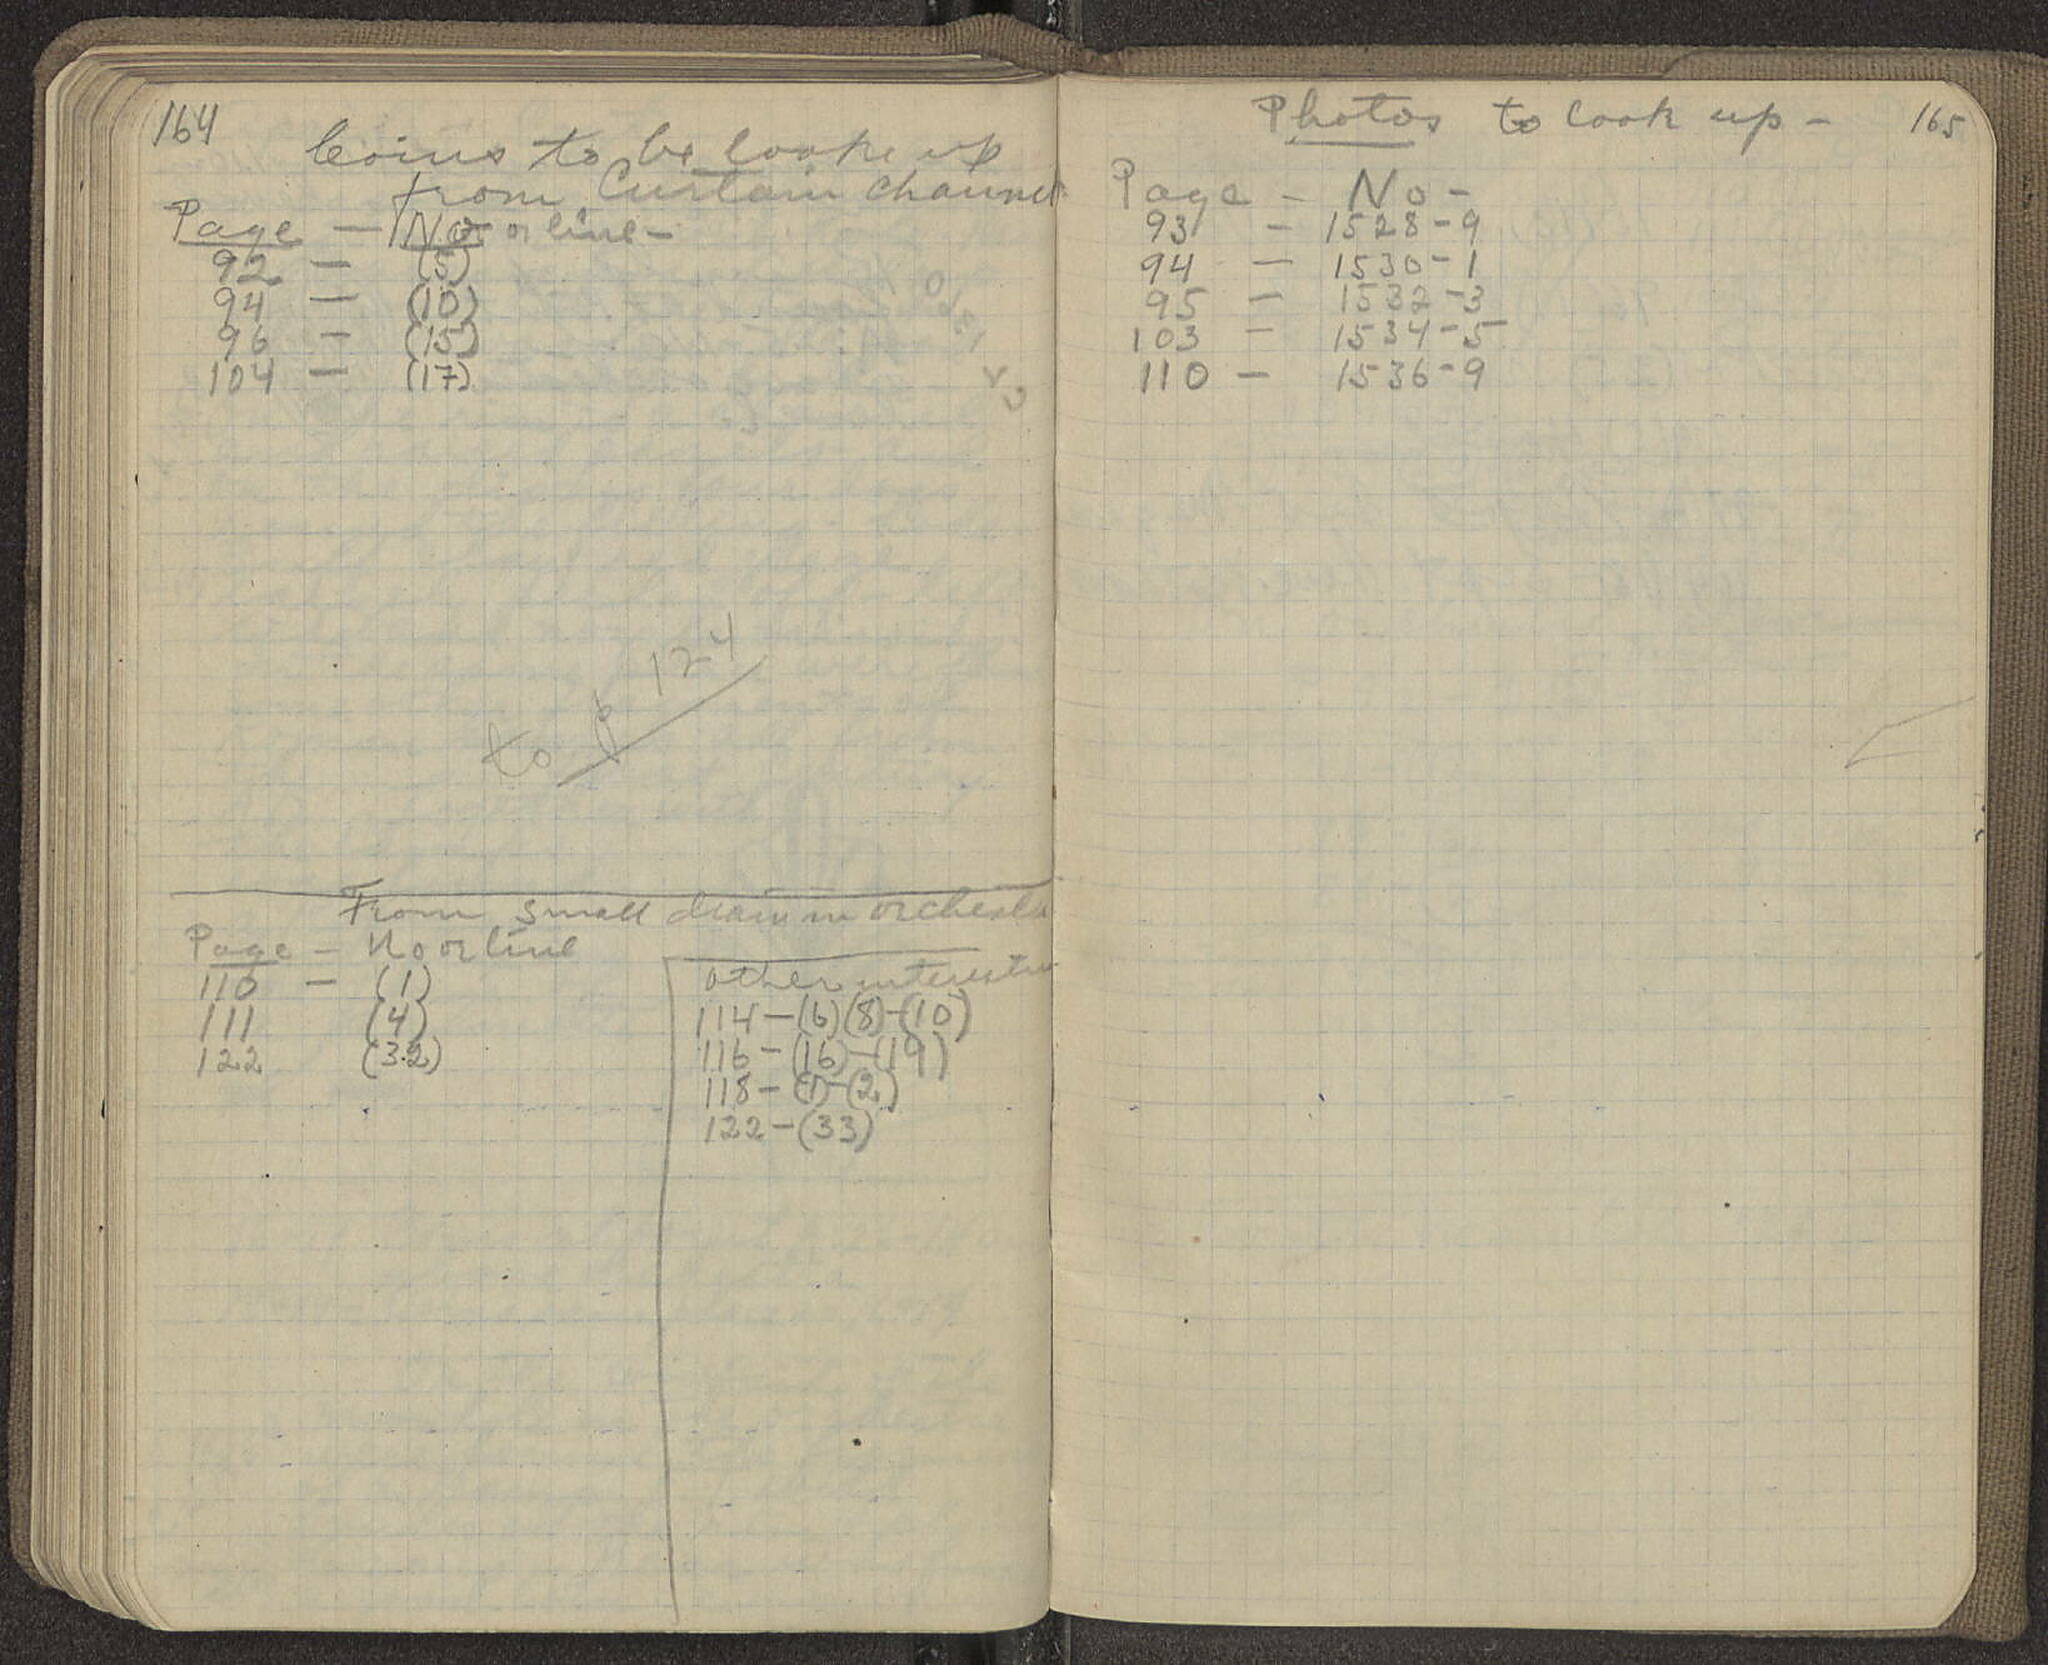 164
Coins to be looke up
from Curtain channel
Page — No or line —
92 — (5)
94 — (10)
96 — (15)
104 — (17)
to p 124
From small drain in orchestra
Page — No or line
110 — (1)
111 (4)
122 (32)
other interestin
114 — (6) (8) — (10)
116 — (16) — (19)
118 — (1) — (2)
122 — (33)
Photos to look up —
165
Page — No —
93 — 1528-9
94 — 1530-1
95 — 1532-3
103 — 1534-5
110 — 1536-9